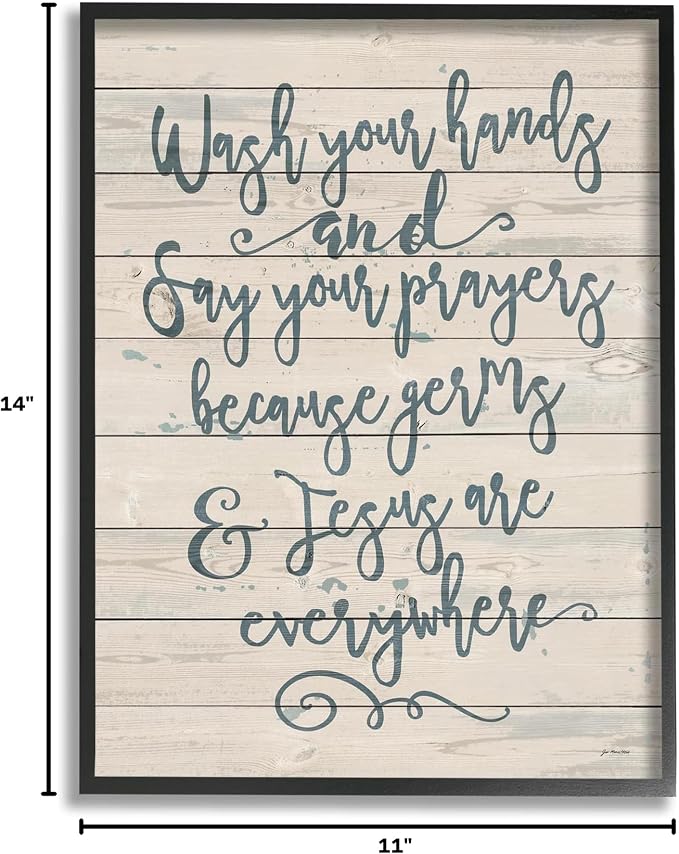 Wash your hands
and
Say your prayers
because germs
& Jesus are
everywhere
14"
11"